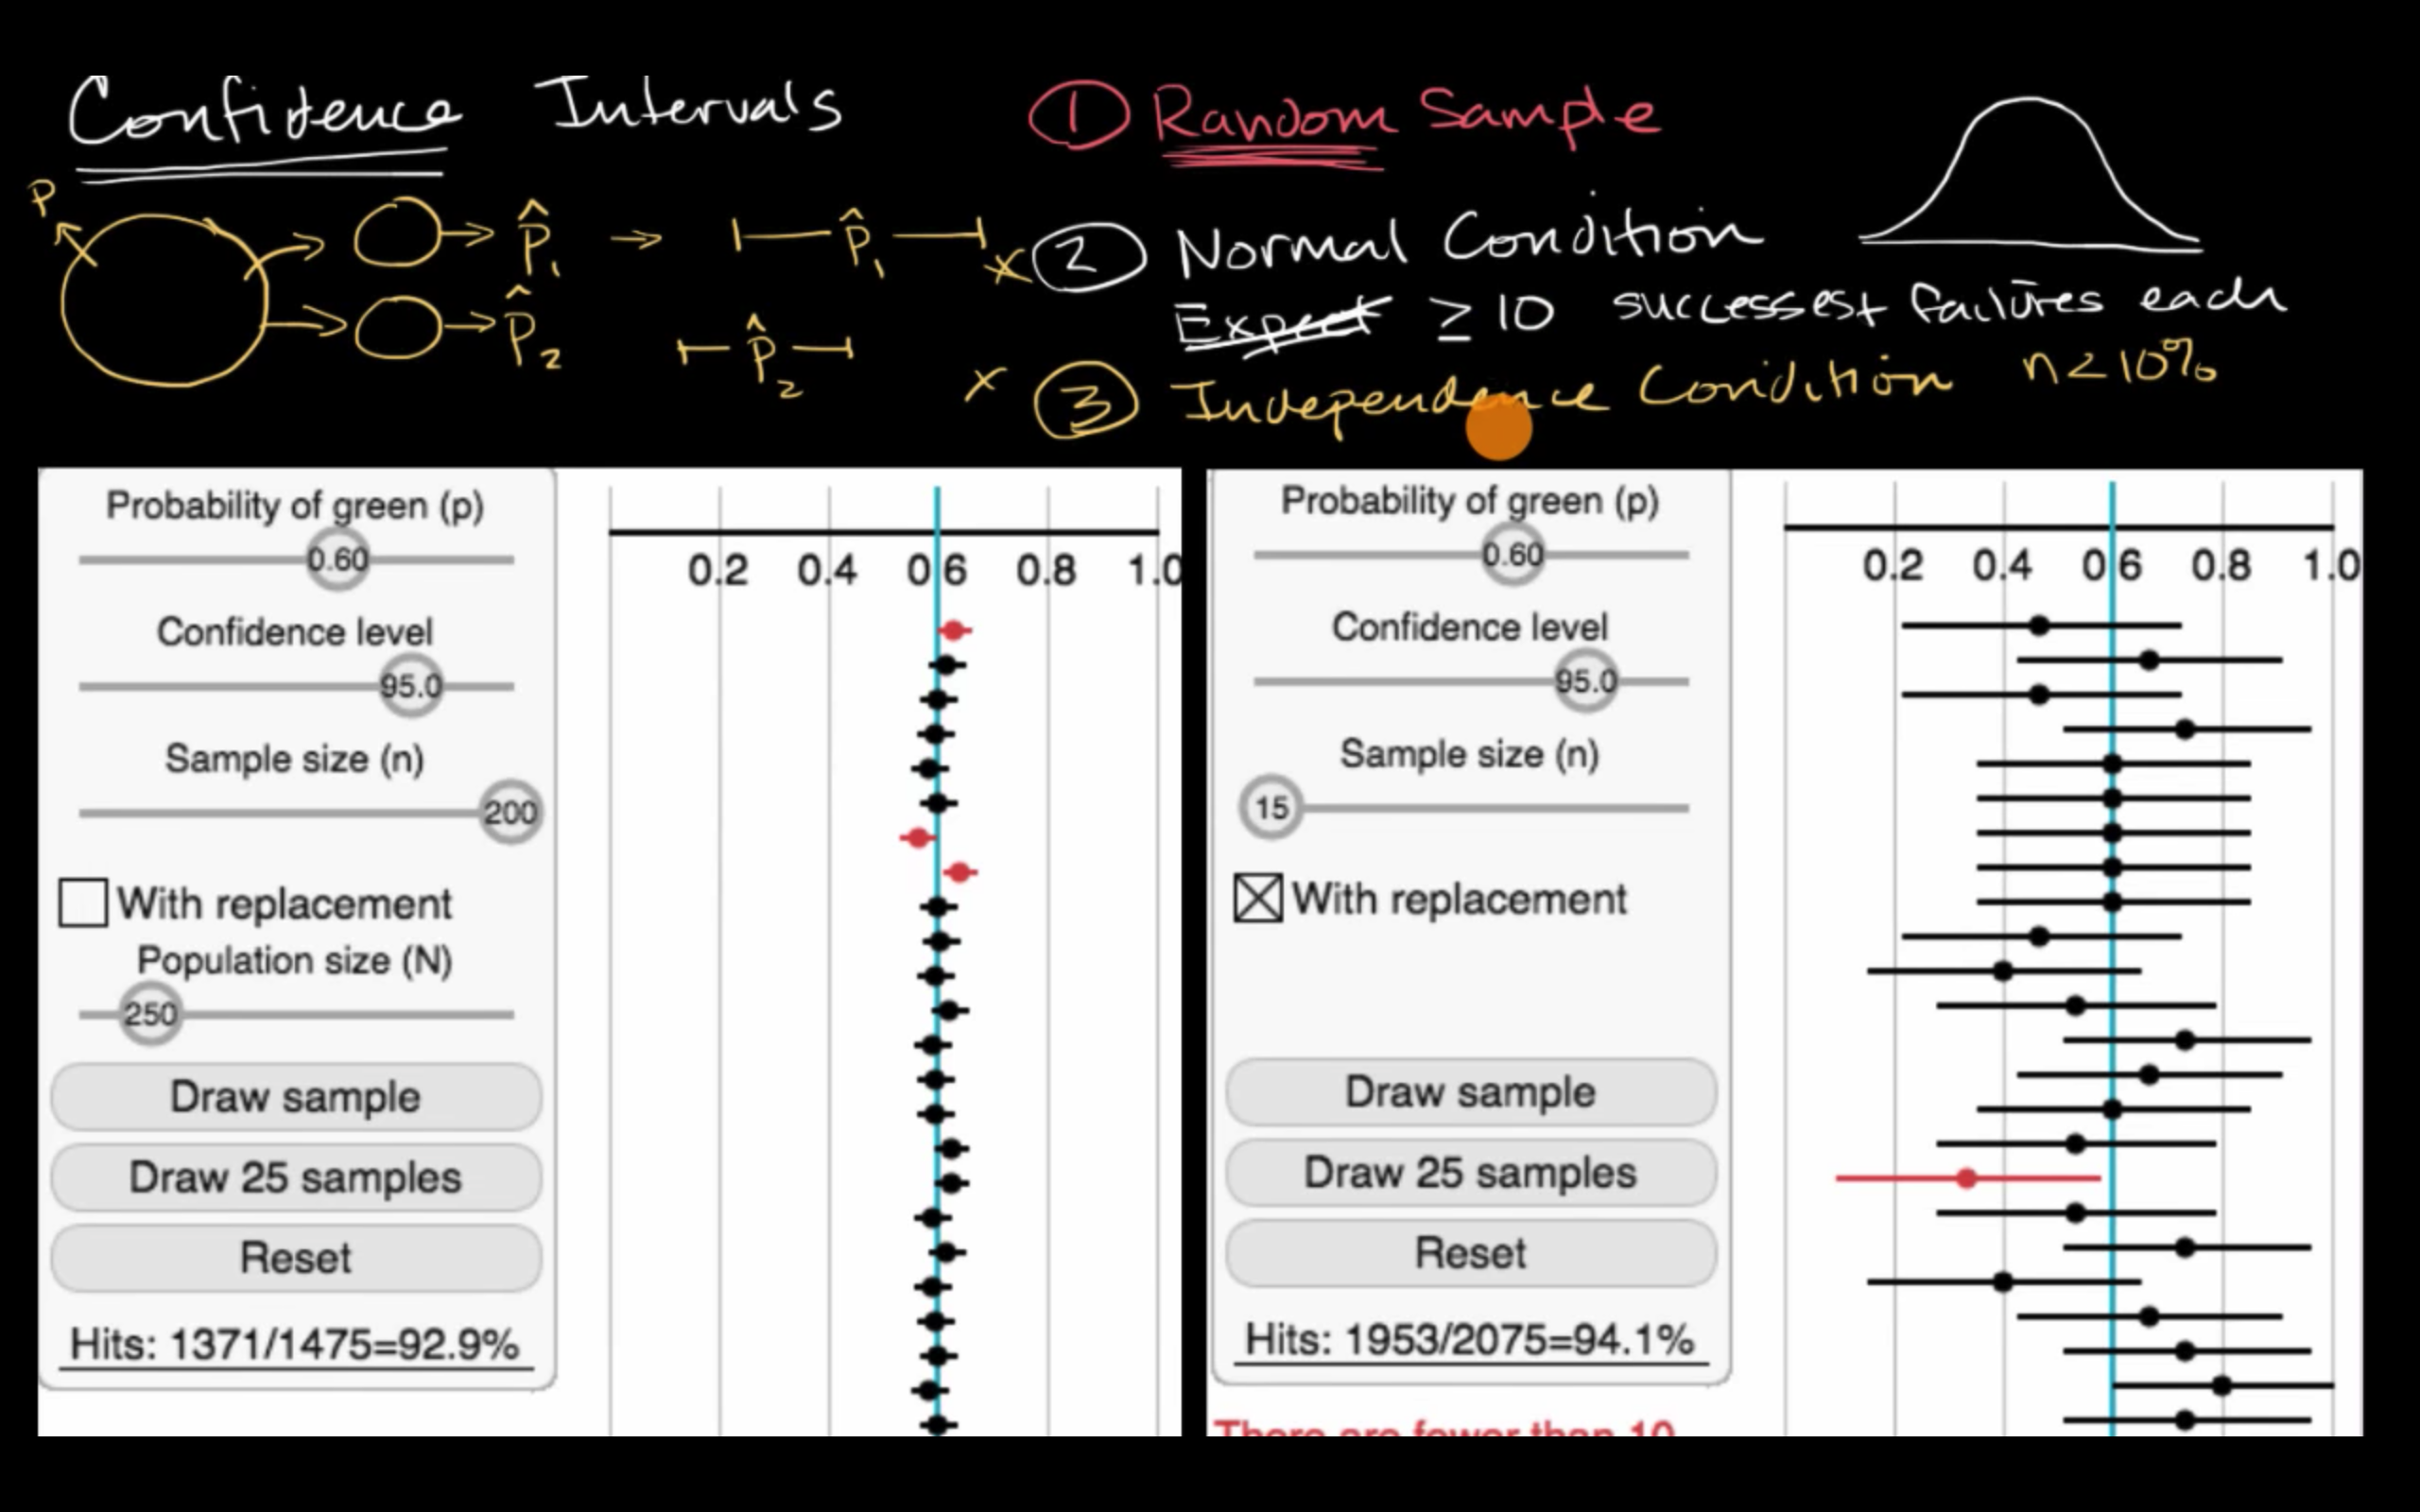 Confidence Intervals
① Random Sample
P
p̂₁ → p̂₁
② Normal Condition
Expect ≥ 10 successes + failures each
p̂₂ p̂₂
③ Independence Condition n < 10%
Probability of green (p)
0.60
Confidence level
95.0
Sample size (n)
200
With replacement
Population size (N)
250
Draw sample
Draw 25 samples
Reset
Hits: 1371/1475=92.9%
0.2 0.4 0.6 0.8 1.0
Probability of green (p)
0.60
Confidence level
95.0
Sample size (n)
15
With replacement
Draw sample
Draw 25 samples
Reset
Hits: 1953/2075=94.1%
There are fewer than 10
0.2 0.4 0.6 0.8 1.0